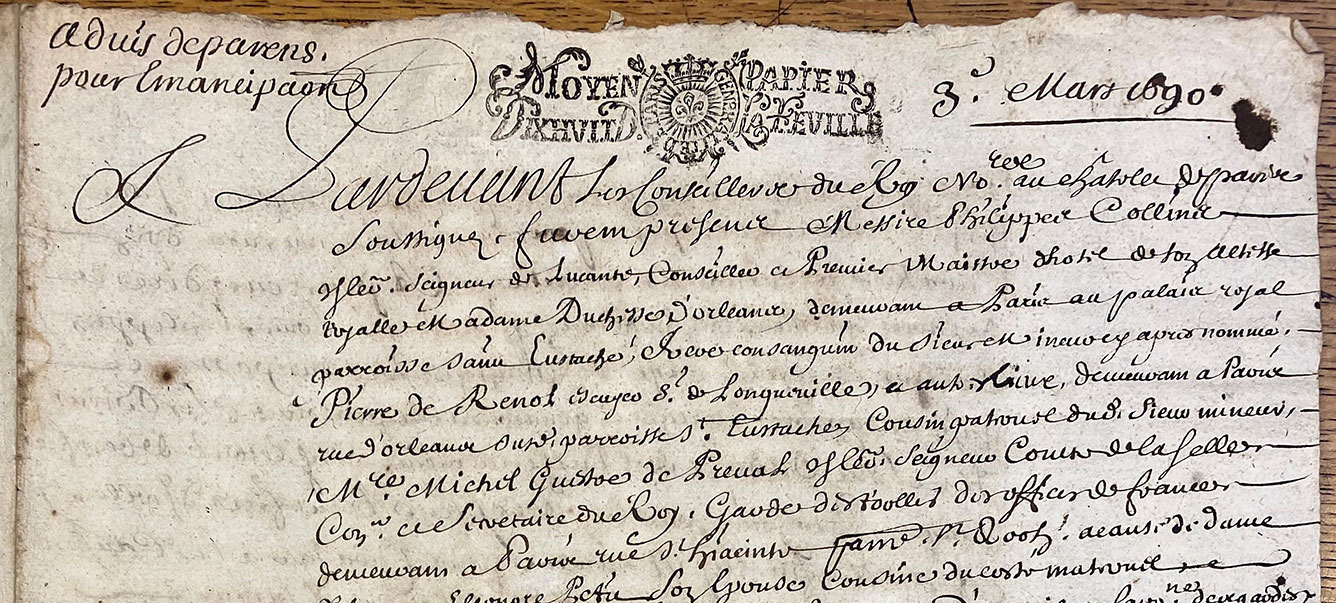 aduis deparens.
pour Emancipaon
MOYEN PAPIER
DIXHUIT D. LA FEUILLE
PARIS GENERALITE DE
3e. Mars 1690.
Pardeuant Les Conseillers du Roy Nores. au Chatelet de paris
Soussignez furent presens Messire Philippes Collins
Chler. Seigneur de Conseiller et Premier Maistre dhotel de Son Altesse
royalle Madame Duchesse D'orleans, demeurant a Paris au palais royal
parroisse saint Eustache, frere consanguin du sieur Mineur cy apres nommé.
Pierre de Renol escuyer Sr. de Longueuille, et autres lieux, demeurant a Paris
rue d'orleans susd. parroisse St. Eustache, Cousin paternel dud. Sieur mineur,
Mre. Michel de Preual Chler. Seigneur Comte de la selle
Conr. et Secretaire du Roy, Garde des roolles des offices de france
demeurant a Paris rue St. hiacinte parre. St. Roch. a cause de dame
Eleonore Petit Son Epouse Cousine du costé maternel